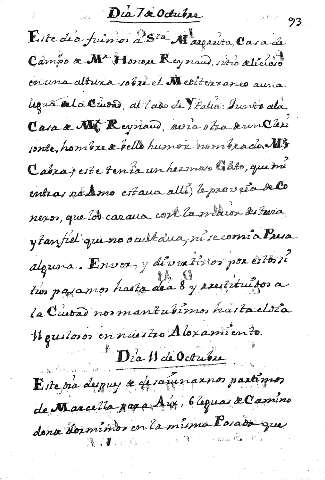 Dia 7 de Octubre
93
Este dia fuimos à Sta Margarita, Casa de
Campo de Mr Honore Reynaud, sitio delicioso
en una altura sobre el Mediterraneo a una
legua de la Ciudad, al lado de Ytalia: Junto ala
Casa de Mr Reynaud, avia otra de un Cleri
gonte, hombre de bello humor nombrado Mr
Cabra, y este tenia un hermoso Gato, que mi
entras su Amo estava alli, le proveia de Co
nexos, que los cazava con la maior destreza
y tan fiel que no ocultava, ni se comia Presa
alguna. En ver, y divertirnos por estos si
tios pasamos hasta el dia 8 y restituidos a
la Ciudad nos mantubimos hasta el dia
11 gustosos en nuestro Aloxamiento.
Dia 11 de Octubre
Este dia despues de desaiunarnos partimos
de Marcella para Aix, 6 leguas de Camino
donde dormimos en la misma Posada que